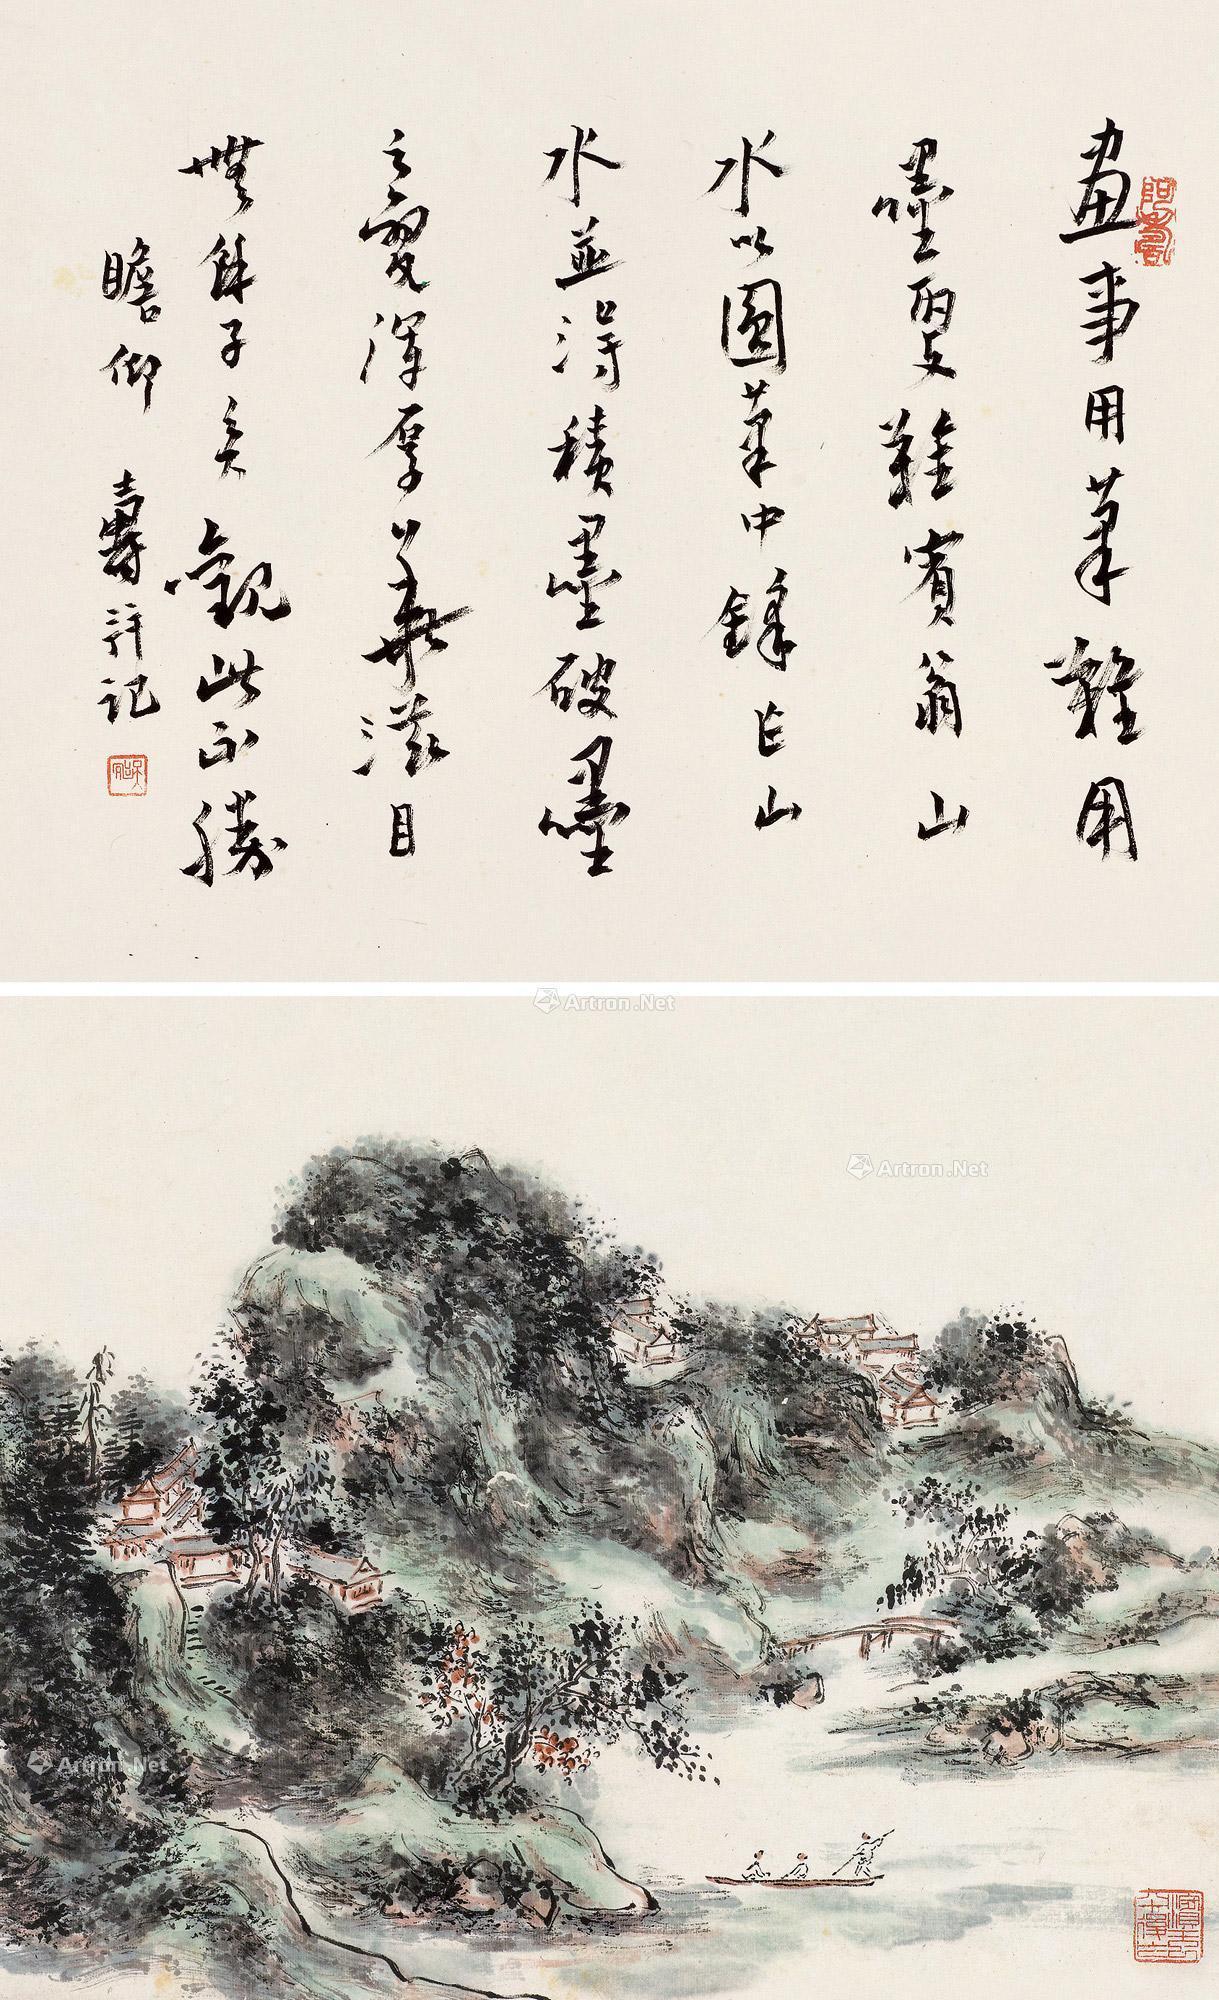 畫事用筆難用
墨更難賓翁山
水以圓筆中鋒作山
水並得積墨破墨
之變渾厚華滋目
無餘子矣觀此不勝
瞻仰 壽評記
Artron.Net
Artron.Net
Artron.Net